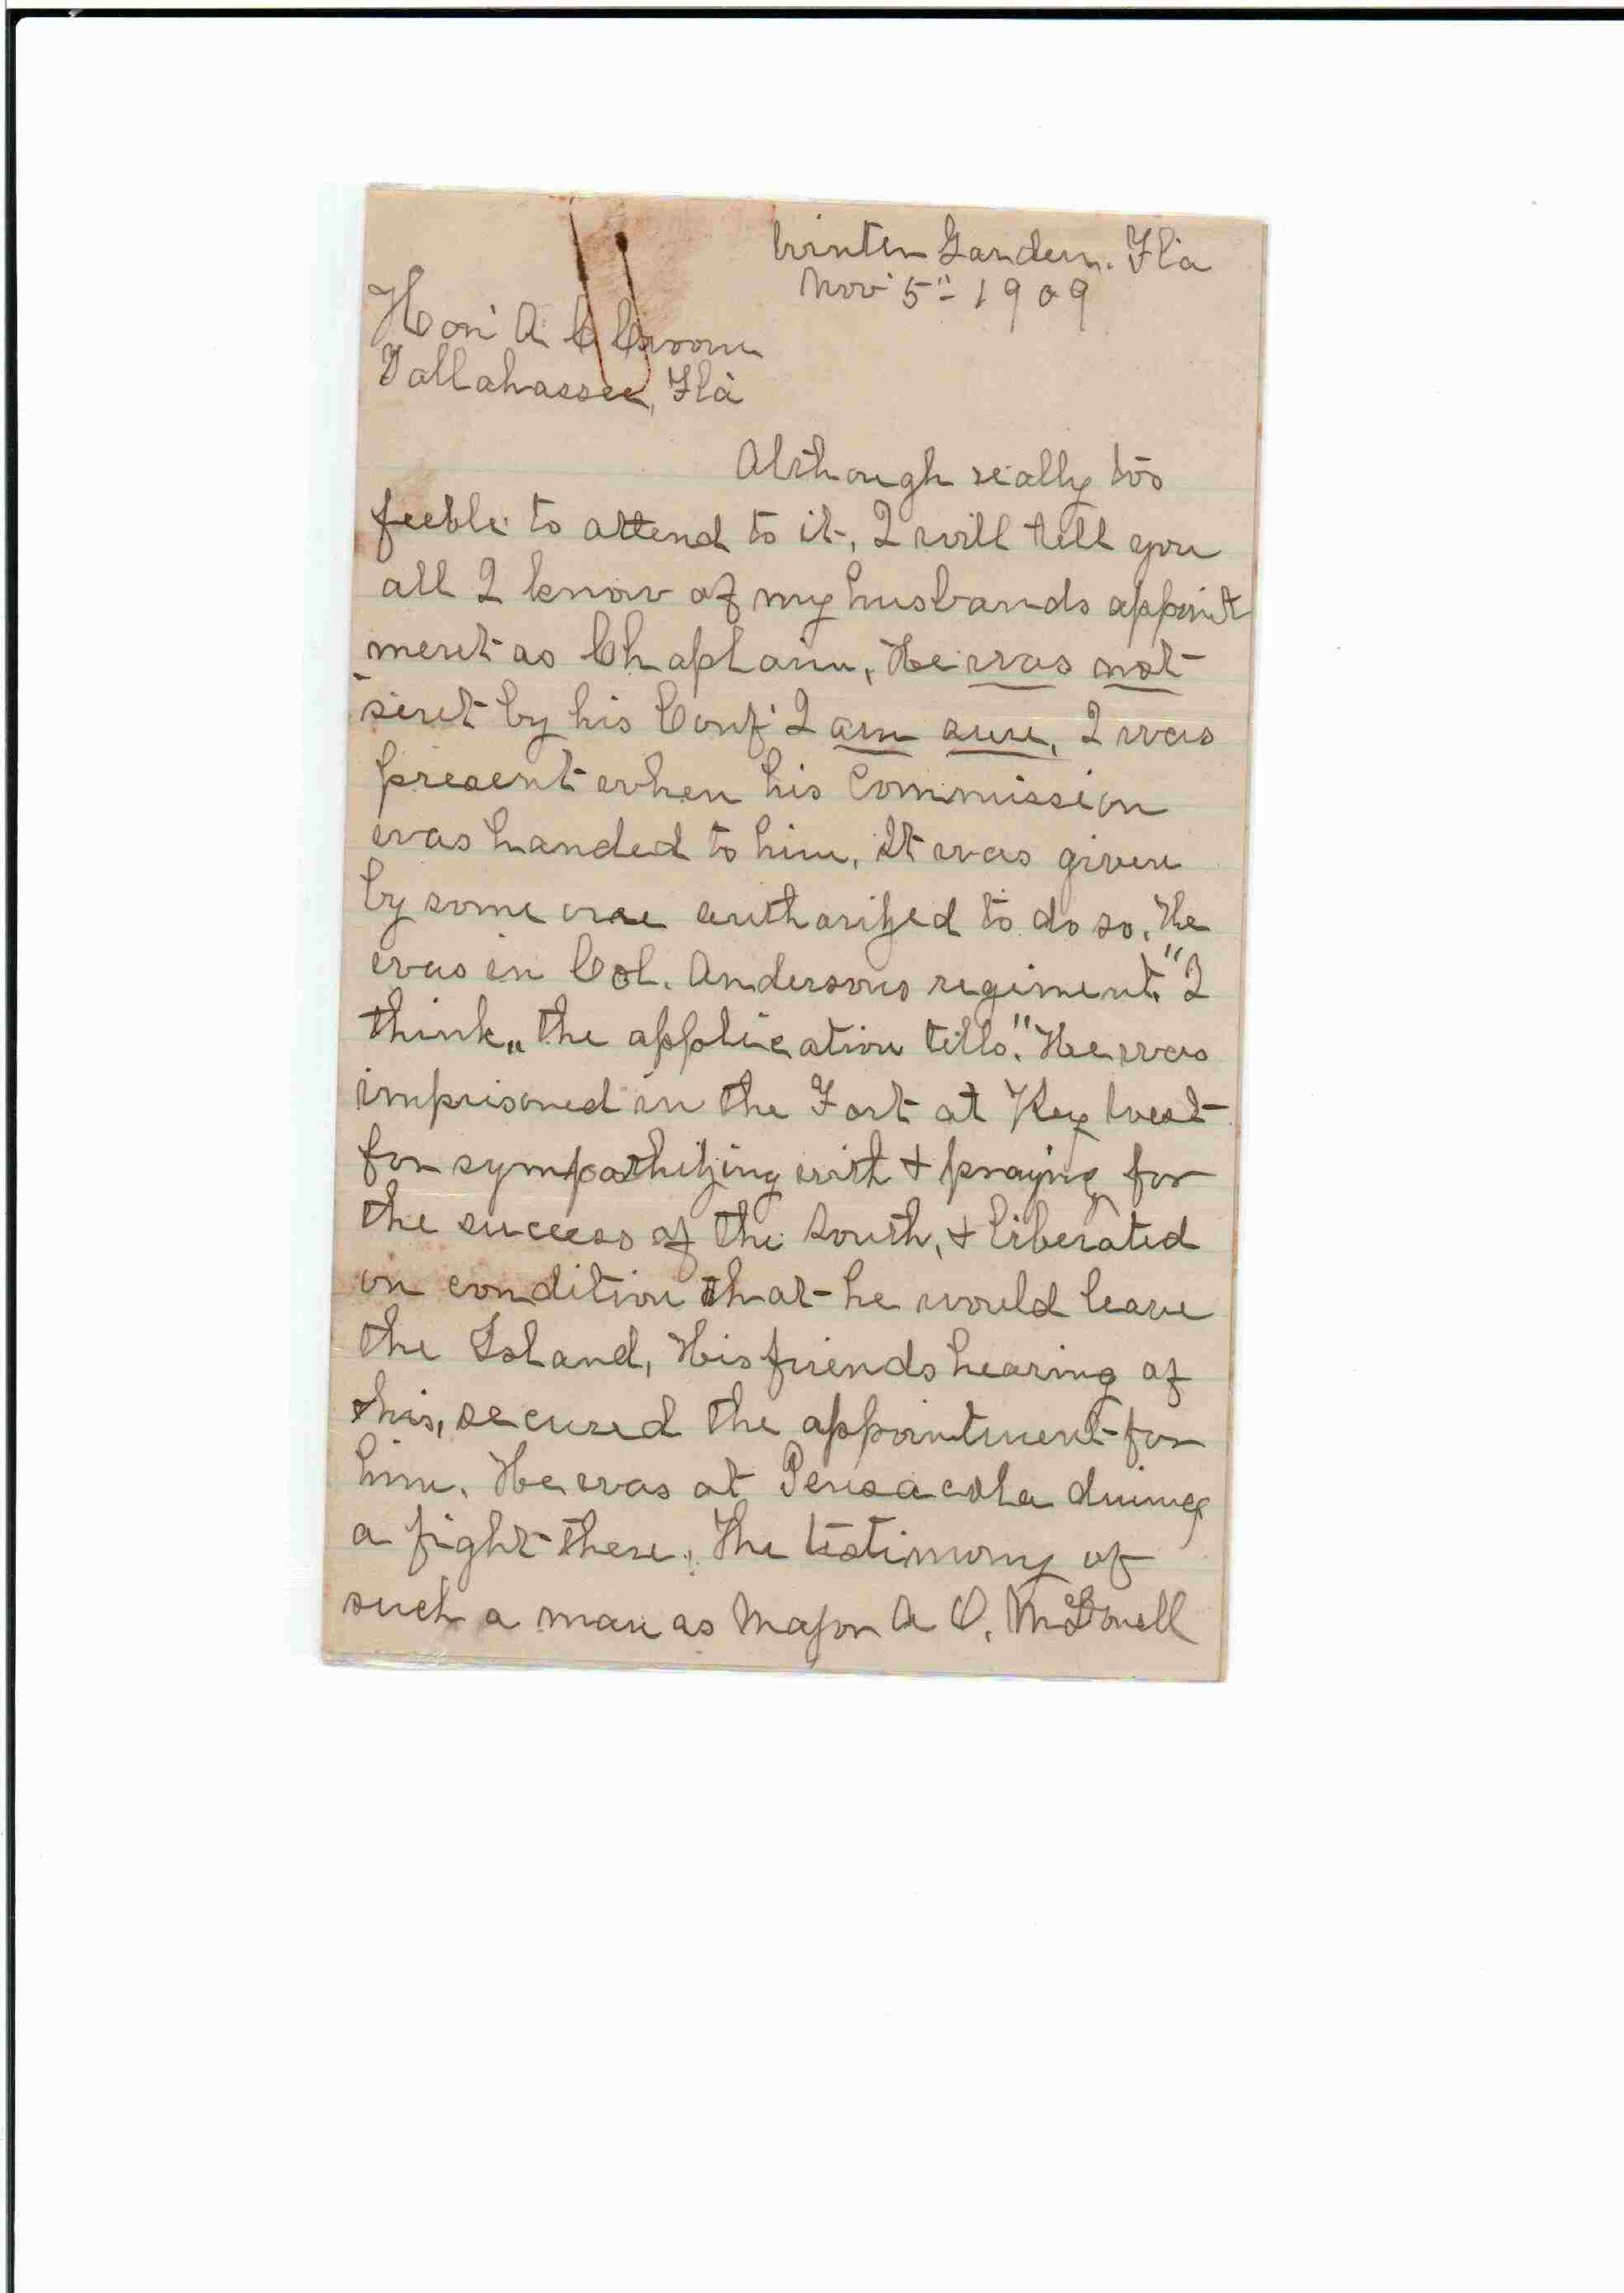 Winter Garden. Fla
Nov 5" 1909
Hon A C Croom
Tallahassee, Fla
Although really too
feeble to attend to it, I will tell you
all I know of my husbands appoint
ment as Chaplain, He was not
sent by his Conf' I am sure, I was
present when his Commission
was handed to him, It was given
by some one authorized to do so. He
was in Col. Andersons regiment. "I
think" "the application tells." He was
imprisoned in the Fort at Key West
for sympathizing with & praying for
the success of the South, & liberated
on condition that he would leave
the Island, His friends hearing of
this, secured the appointment for
him. He was at Pensacola during
a fight there. The testimony of
such a man as Major A O. McDonell